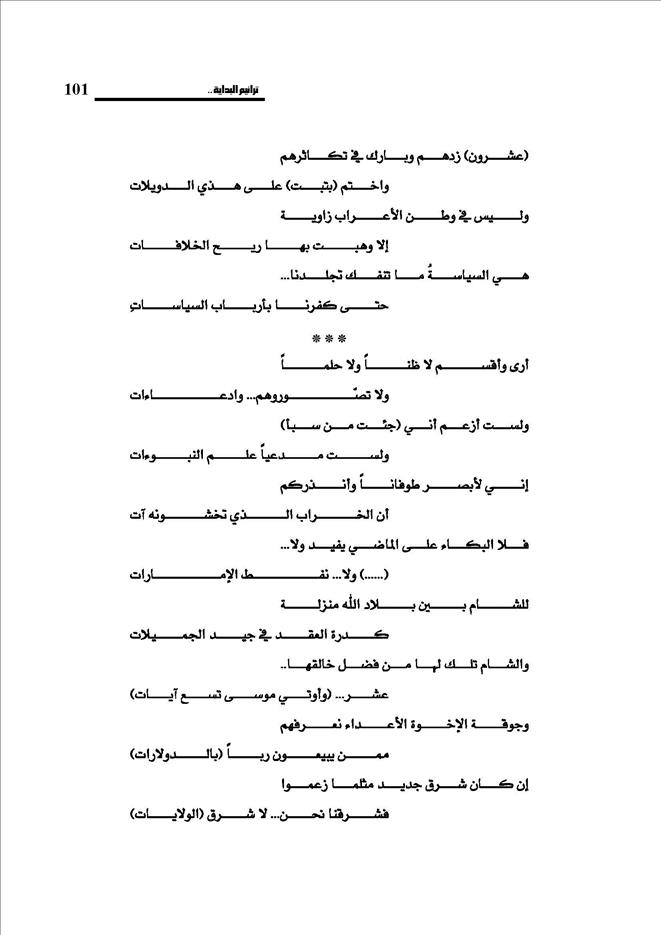 ترانيم البداية..
101
(عشرون) زدهم وبارك في تكاثرهم
واختم (بتبت) على هذي الدويلات
وليس في وطن الأعراب زاوية
إلا وهبت بها ريح الخلافات
هي السياسةُ ما تنفك تجلدنا...
حتى كفرنا بأرباب السياساتِ
***
أرى وأقسم لا ظناً ولا حلماً
ولا تصّوروهم... وادعاءات
ولست أزعم أني (جئت من سبأ)
ولست مدعياً علم النبوءات
إني لأبصر طوفاناً وأنذركم
أن الخراب الذي تخشونه آت
فلا البكاء على الماضي يفيد ولا...
(......) ولا... نفط الإمارات
للشام بين بلاد الله منزلة
كدرة العقد في جيد الجميلات
والشام تلك لها من فضل خالقها..
عشر... (وأوتي موسى تسع آيات)
وجوقة الإخوة الأعداء نعرفهم
ممن يبيعون رباً (بالدولارات)
إن كان شرق جديد مثلما زعموا
فشرقنا نحن... لا شرق (الولايات)